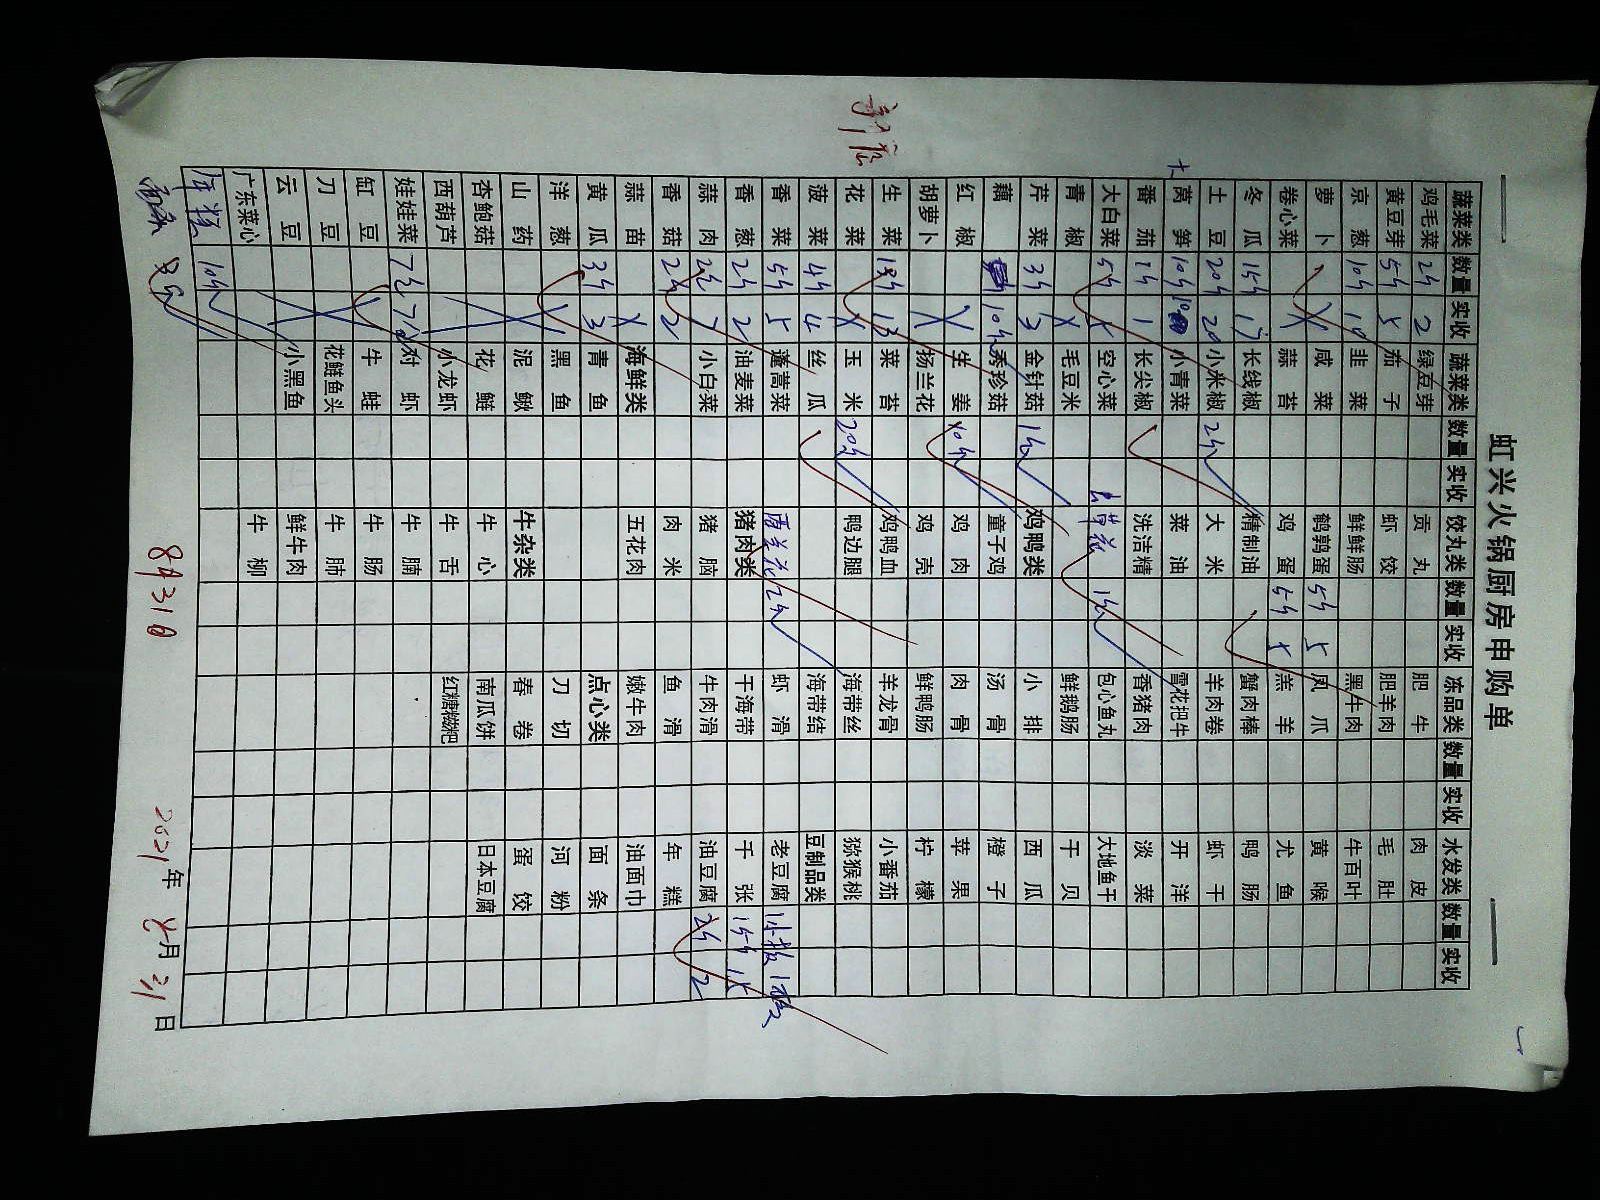 虹兴火锅厨房申购单
蔬菜类 数量 实收 蔬菜类 数量 实收 饺丸类 数量 实收 冻品类 数量 实收 水发类 数量 实收
鸡毛菜 2斤 2 绿豆芽 贡丸 肥牛 肉皮
黄豆芽 5斤 5 茄子 虾饺 肥羊肉 毛肚
京葱 10斤 10 韭菜 鲜鲜肠 黑牛肉 牛百叶
萝卜 咸菜 鹌鹑蛋 5斤 5 凤爪 黄喉
卷心菜 蒜苔 鸡蛋 5斤 5 羔羊 尤鱼
冬瓜 15斤 15 长线椒 精制油 蟹肉棒 鸭肠
土豆 20斤 20 小米椒 2斤 大米 羊肉卷 虾干
大莴笋 10斤 10 小青菜 菜油 雪花把牛 开洋
番茄 1斤 1 长尖椒 洗洁精 香猪肉 淡菜
大白菜 5斤 空心菜 草花 1斤 包心鱼丸 大地鱼干
青椒 毛豆米 鲜鹅肠 干贝
芹菜 3斤 3 金针菇 1斤 鸡鸭类 小排 西瓜
藕 10斤 秀珍菇 童子鸡 汤骨 橙子
红椒 生姜 10斤 鸡肉 肉骨 苹果
胡萝卜 杨兰花 鸡壳 鲜鸭肠 柠檬
生菜 13斤 13 菜苔 鸡鸭血 羊龙骨 小番茄
花菜 玉米 20斤 鸭边腿 海带丝 猕猴桃
菠菜 4斤 4 丝瓜 海带结 豆制品类
香菜 5斤 5 蓬蒿菜 西兰花 2斤 虾滑 老豆腐 1小板 1板
香葱 2斤 2 油麦菜 猪肉类 干海带 千张 15斤 15
蒜肉 2斤 小白菜 猪脑 牛肉滑 油豆腐 2斤 2
香菇 2斤 2 肉米 鱼滑 年糕
蒜苗 海鲜类 五花肉 嫩牛肉 油面巾
黄瓜 3斤 3 青鱼 点心类 面条
洋葱 黑鱼 刀切 河粉
山药 泥鳅 牛杂类 春卷 蛋饺
杏鲍菇 花鲢 牛心 南瓜饼 日本豆腐
西葫芦 小龙虾 牛舌 红糖糍粑
娃娃菜 7包 7包 对虾 牛腩
缸豆 牛蛙 牛肠
刀豆 花鲢鱼头 牛肺
云豆 小黑鱼 鲜牛肉
广东菜心 牛柳
年糕 10斤
8月31日 2021年8月31日